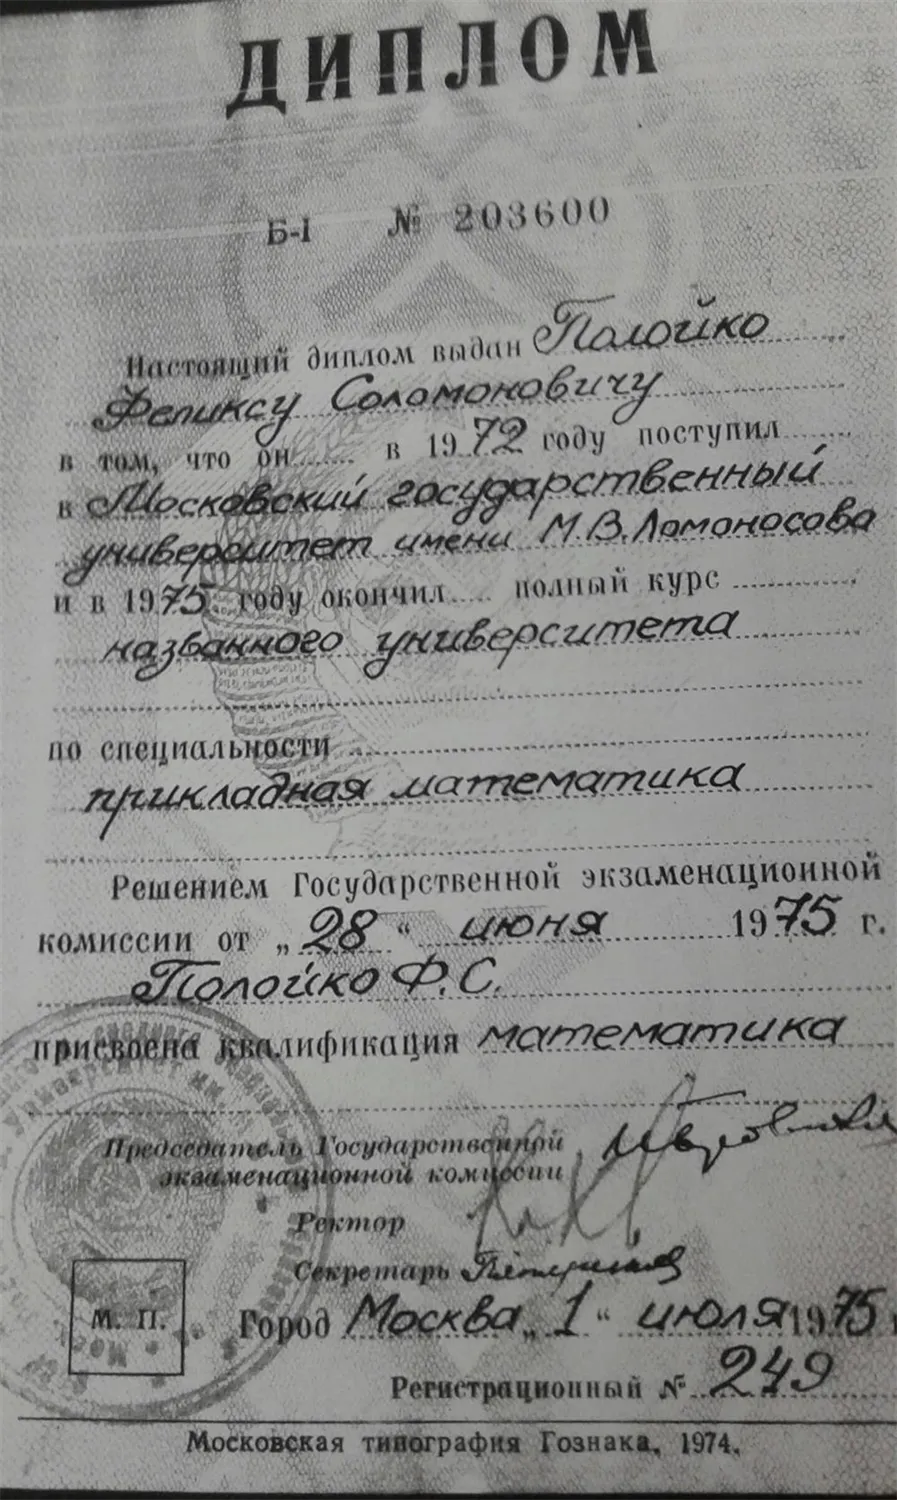 ДИПЛОМ
Б-I № 203600
Настоящий диплом выдан Полойко
Феликсу Соломоновичу
в том, что он в 1972 году поступил
в Московский государственный
университет имени М.В.Ломоносова
и в 1975 году окончил полный курс
названного университета
по специальности
прикладная математика
Решением Государственной экзаменационной
комиссии от „28“ июня 1975 г.
Полойко Ф.С.
присвоена квалификация математика
Председатель Государственной
экзаменационной комиссии
Ректор
Секретарь
М. П.
Город Москва „1“ июля 1975
Регистрационный № 249
Московская типография Гознака, 1974.